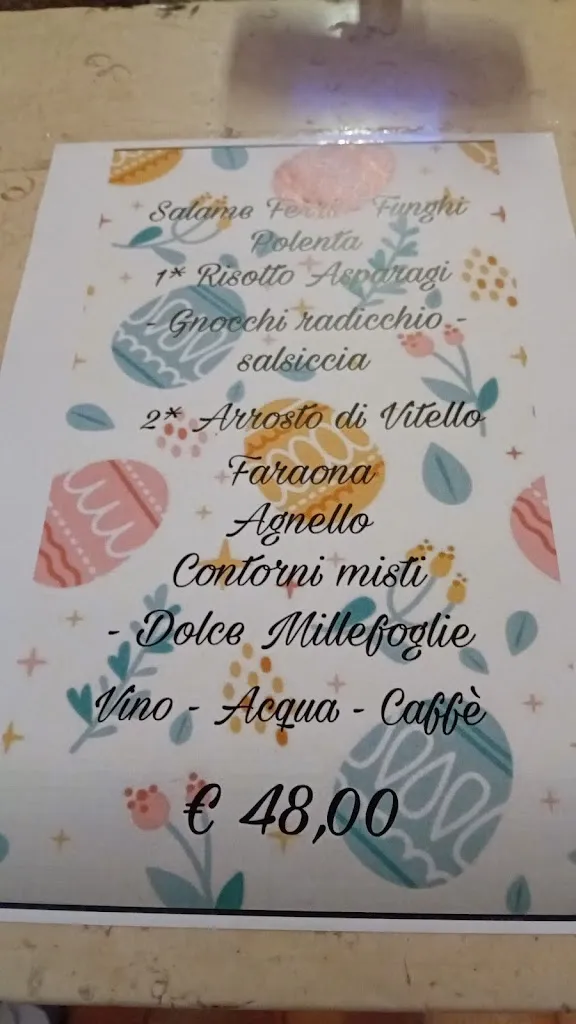 Salame Ferri - Funghi
Polenta
1* Risotto Asparagi
- Gnocchi radicchio -
salsiccia
2* Arrosto di Vitello
Faraona
Agnello
Contorni misti
- Dolce Millefoglie
Vino - Acqua - Caffè
€ 48,00